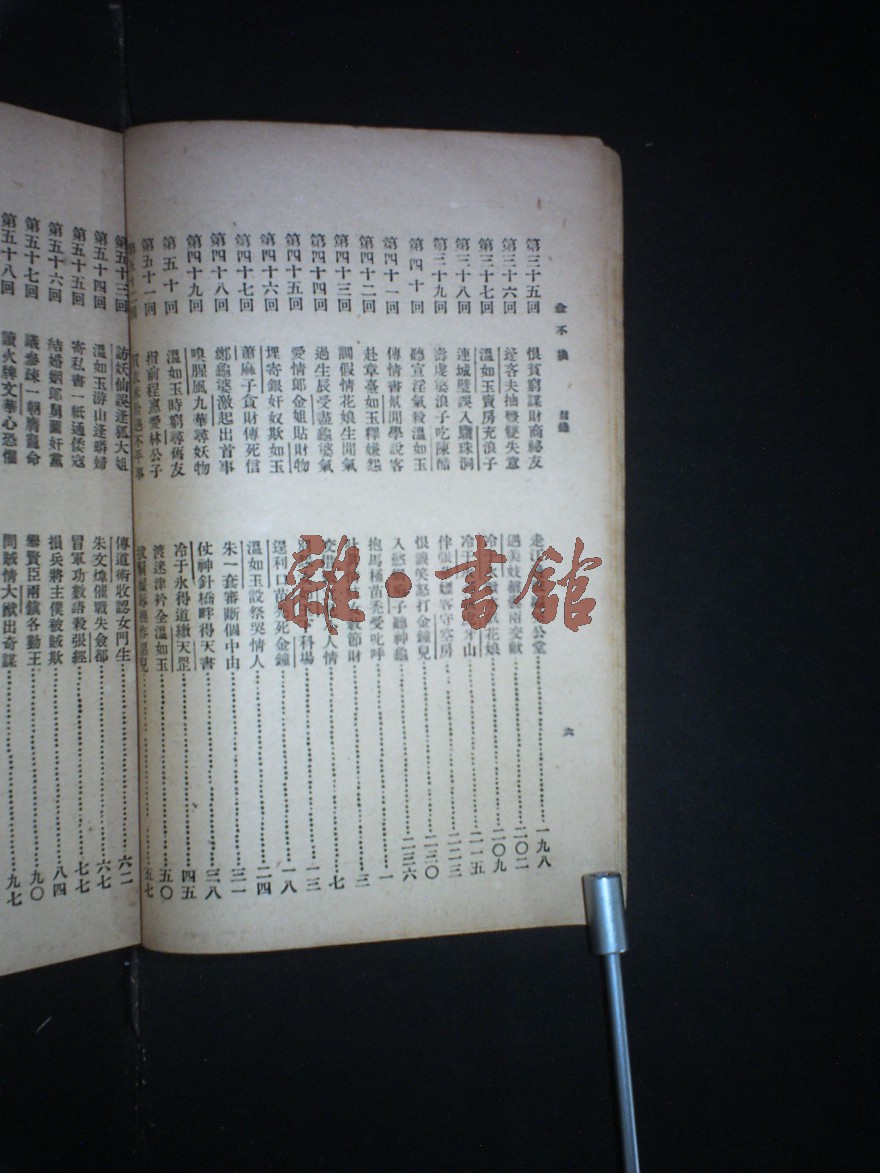 金不換 目錄 六
第三十五回 恨貧窮謀財商祕友 走江 公堂 一九八
第三十六回 逐客夫抽豐雙失意 遇美妓 兩交歡 二〇二
第三十七回 溫如玉賣房充浪子 冷 花娘 二〇九
第三十八回 連城璧誤入驪珠洞 冷于 牙山 二一五
第三十九回 壽虔婆浪子吃陳醋 伴 嫖客守空房 二二三
第四十回 聽宣淫氣殺溫如玉 恨譏笑怒打金鐘兒 二三〇
第四十一回 傳情書幫閒學說客 入 子聽神龜 二三六
第四十二回 赴章臺如玉釋嫌怨 抱馬桶苗禿受叱呼 一
第四十三回 調假情花娘生閒氣 節財 三
第四十四回 過生辰受盡龜婆氣 交 人情 七
第四十五回 愛情郎金姐貼財物 科場 一三
第四十六回 埋寄銀奸奴欺如玉 逞利口苗 死金鐘 一八
第四十七回 蕭麻子貪財傳死信 溫如玉設祭哭情人 二四
第四十八回 鄭龜婆激起出首事 朱一套審斷個中由 三一
第四十九回 嗅腥風九華尋妖物 仗神針橋畔得天書 三八
第五十回 溫如玉時窮尋舊友 冷于氷得道繳天罡 四五
第五十一回 指前程惠愛林公子 渡迷津矜全溫如玉 五〇
不平事 五七
第五十三回 訪妖仙誤逢狐大姐 傳道術收認女門生 六二
第五十四回 溫如玉游山逢蟒婦 朱文煒催戰失僉都 六七
第五十五回 寄私書一紙通倭寇 冒軍功數語殺張經 七七
第五十六回 結婚姻郎舅圖奸黨 損兵將主僕被賊欺 八四
第五十七回 議參疎一朝膺寵命 舉賢臣兩鎮各勤王 九〇
第五十八回 讀火牌文華心恐懼 問賊情大猷出奇謀 九七
雜·書館